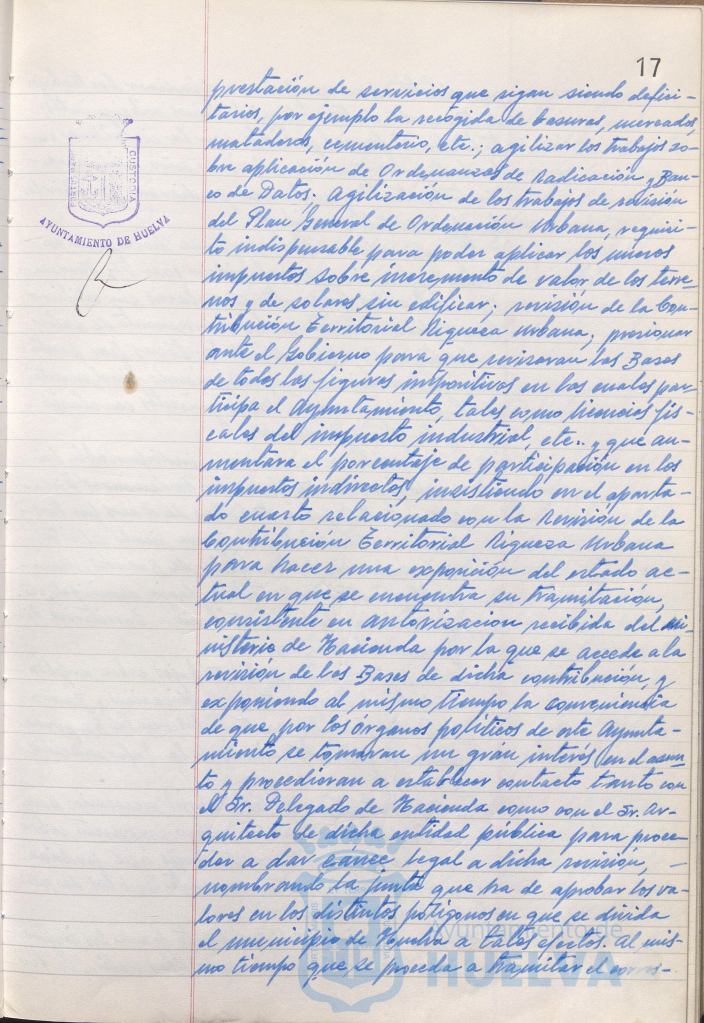 17
prestación de servicios que sigan siendo defici-
tarios, por ejemplo la recogida de basuras, mercados,
mataderos, cementerio, etc.; agilizar los trabajos so-
bre aplicación de Ordenanzas de radicación y Ban-
co de Datos. Agilización de los trabajos de revisión
del Plan General de Ordenación Urbana, requisi-
to indispensable para poder aplicar los nuevos
impuestos sobre incremento de valor de los terre-
nos y de solares sin edificar; revisión de la Con-
tribución Territorial Riqueza Urbana; presionar
ante el Gobierno para que revisaran las Bases
de todas las figuras impositivas en las cuales par-
ticipa el Ayuntamiento, tales como licencias fis-
cales del impuesto industrial, etc.. y que au-
mentara el porcentaje de participación en los
impuestos indirectos, insistiendo en el aparta-
do cuarto relacionado con la revisión de la
Contribución Territorial Riqueza Urbana
para hacer una exposición del estado ac-
tual en que se encuentra su tramitación,
consistente en autorización recibida del Mi-
nisterio de Hacienda por la que se accede a la
revisión de las Bases de dicha contribución, y
exponiendo al mismo tiempo la conveniencia
de que por los órganos políticos de este Ayunta-
miento se tomaran un gran interés en el asun-
to y procedieran a establecer contacto tanto con
el Sr. Delegado de Hacienda como con el Sr. Ar-
quitecto de dicha entidad pública para proce-
der a dar cauce legal a dicha revisión, -
nombrando la junta que ha de aprobar los va-
lores en los distintos polígonos en que se divida
el municipio de Huelva a tales efectos. Al mis-
mo tiempo que se proceda a tramitar el corres-
CUSTODIA
AYUNTAMIENTO DE HUELVA
Ayuntamiento de
HUELVA